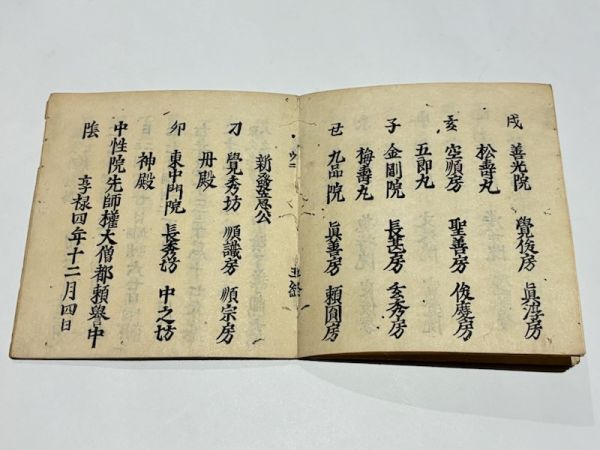 戌 善光院 覺後房
松壽丸
亥 空順房 聖善房 俊慶房
五郎丸
子 金剛院 長芸房 玄秀房
梅壽丸
丑 九品院 眞善房 頼圓房
新發意公
刀 覺秀坊 順識房 順宗房
丹殿
卯 東中門院 長秀坊 中之坊
神殿
中性院先師權大僧都頼譽中
陰 享禄四年十二月四日